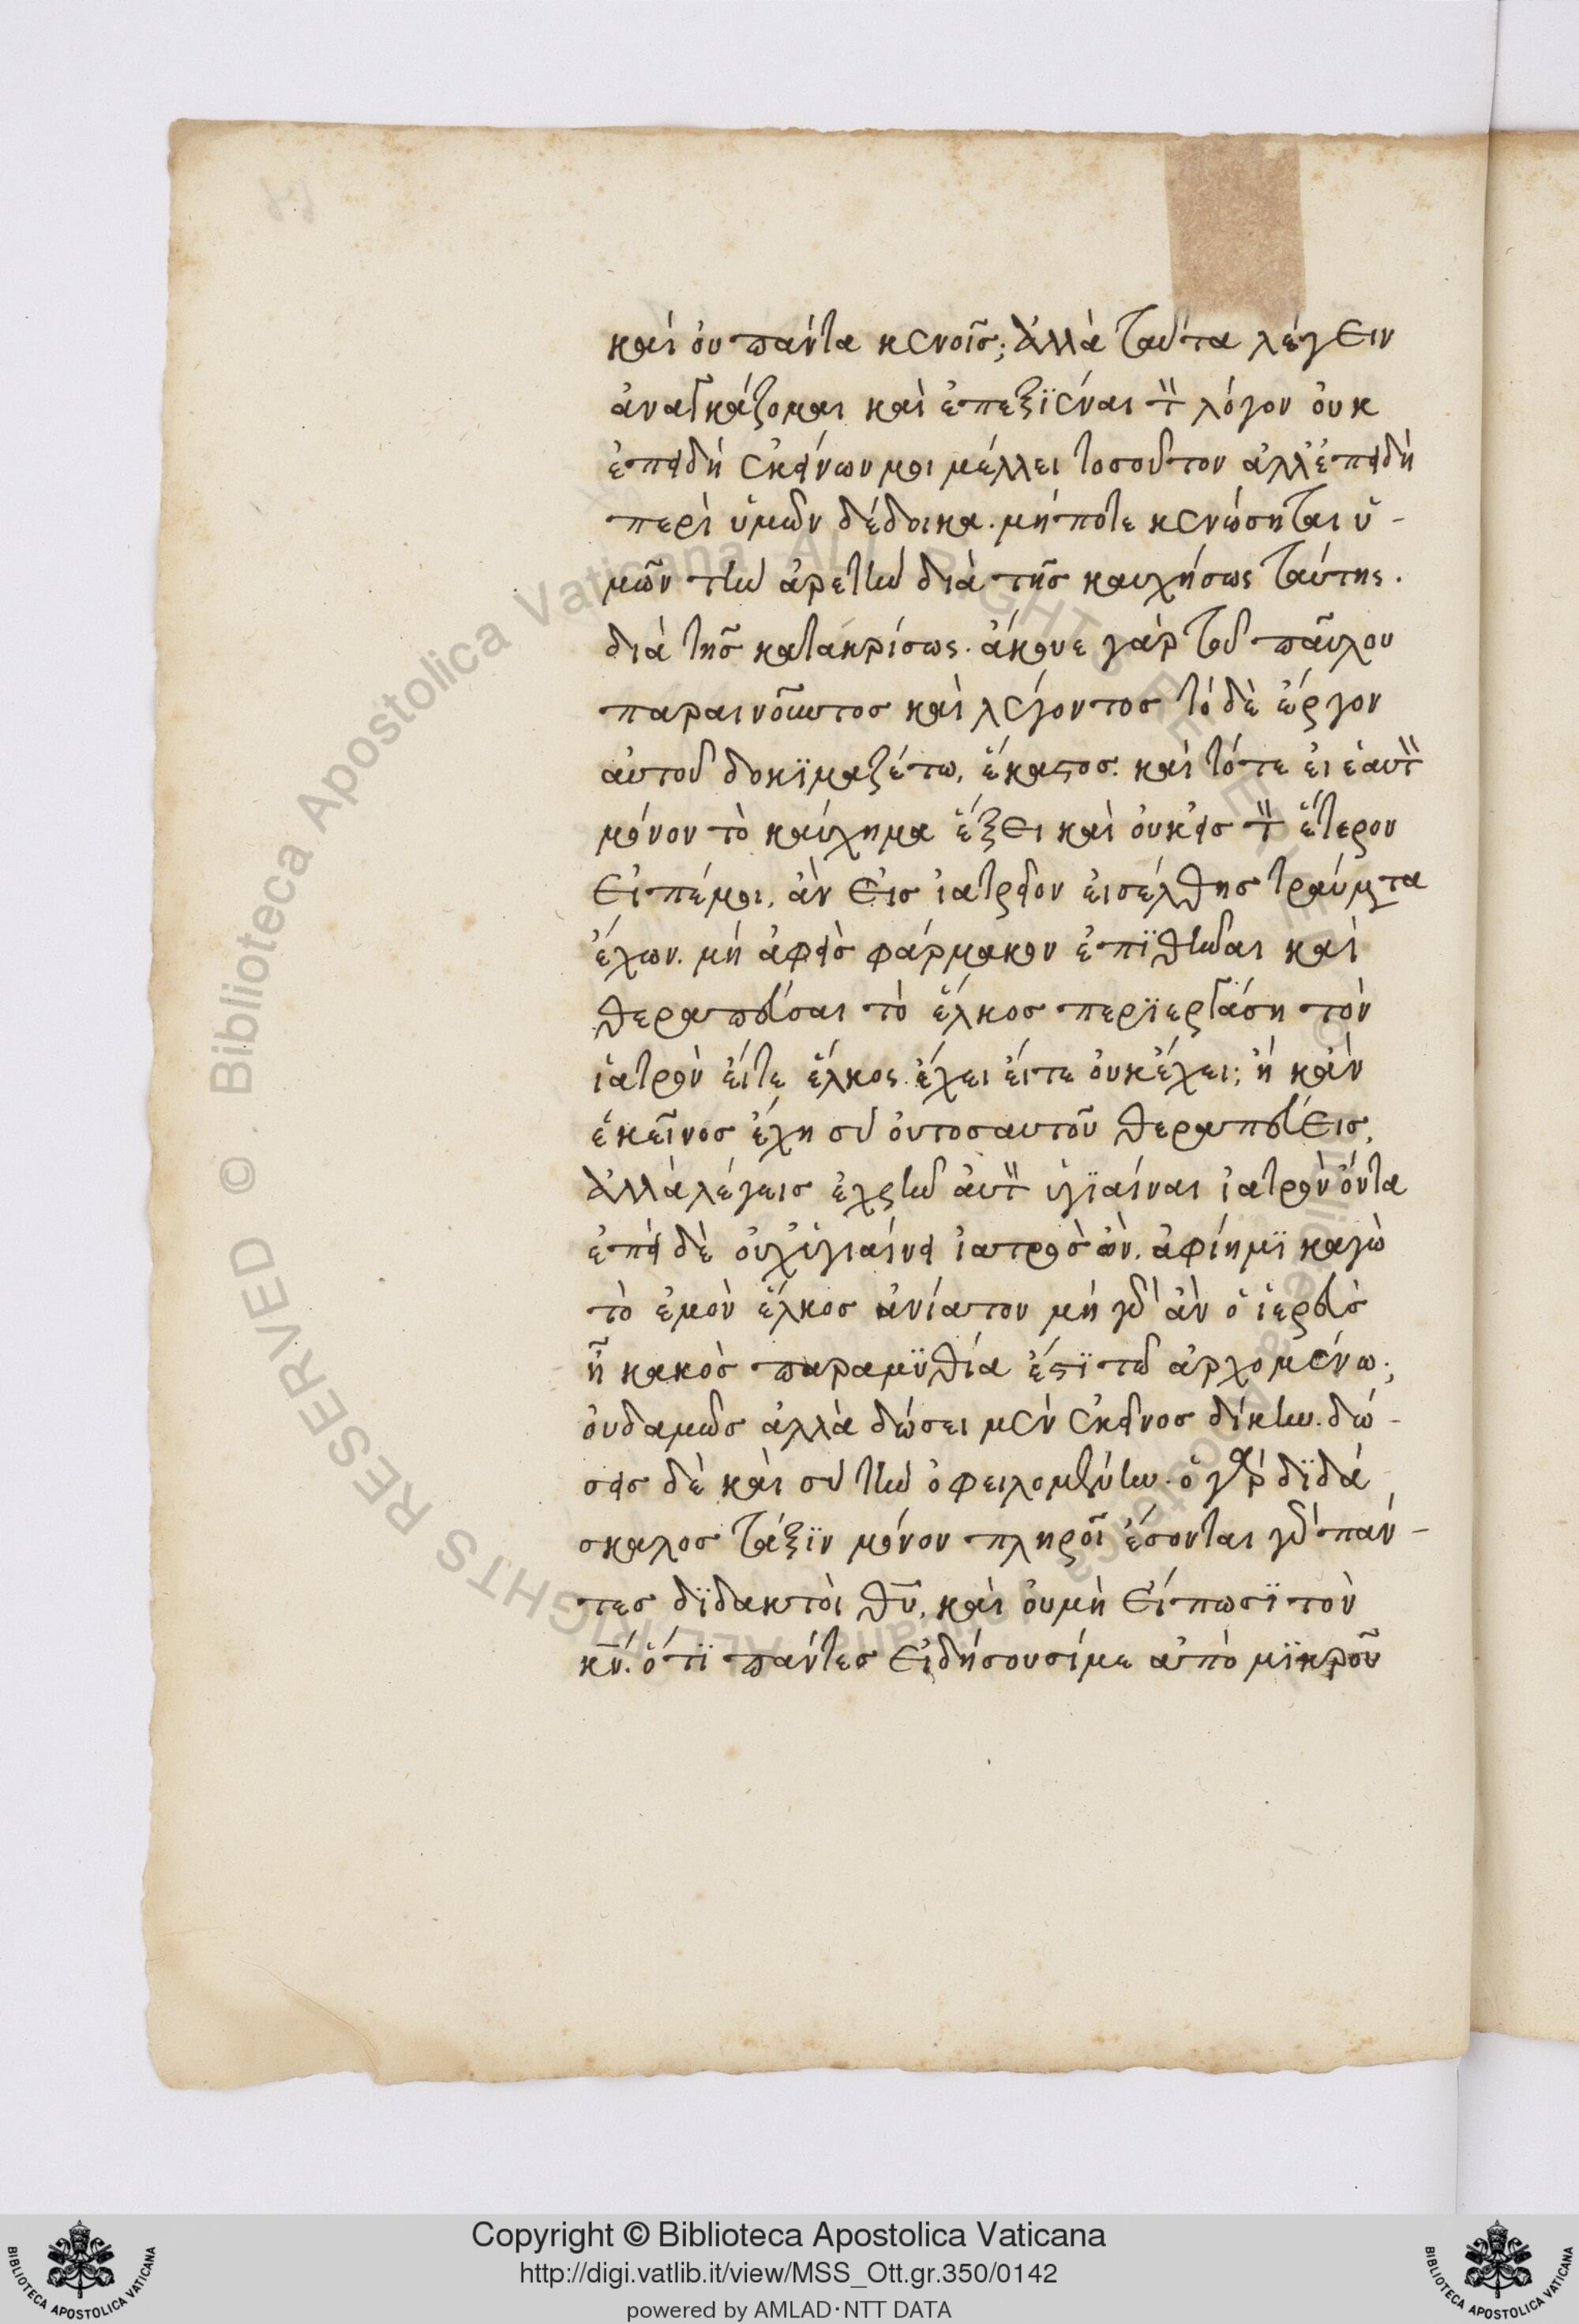 καὶ ὁυ πάντα κενοῖς; Ἀλλὰ ταῦτα λέγειν
ἀναγκάζομαι καὶ ἐπεξϊέναι τὸν λόγον ὀυκ
ἐπειδὴ ἐκείνων μοι μέλλει τοσοῦτον ἀλλ' ἐπειδὴ
περὶ ὑμῶν δέδοικα. μήποτε κενώσηται ὑ-
μῶν τὴν ἀρετὴν διὰ τῆς καυχήσεως ταύτης.
διὰ τῆς κατακρίσεως. ἄκουε γὰρ τοῦ παῦλου
παραινοῦντος καὶ λέγοντος τὸ δὲ ἔργον
ἀυτοῦ δοκϊμαζέτω, ἕκαστος. καὶ τότε ἐι ἑαυτὸν
μόνον τὸ καύχημα ἕξει καὶ ὀυκ εἰς τὸν ἕτερον
Εἰπέ μοι, ἀν εἰς ἰατρεῖον ἐισέλθης τραύματα
ἔχων. μὴ ἀφεὶς φάρμακον ἐπϊθῆναι καὶ
θεραπεῦσαι τὸ ἕλκος περϊεργάση τὸν
ἰατρὸν ἐίτε ἕλκος ἔχει ἐίτε ὀυκ ἔχει; ἠ κἀν
ἐκεῖνος ἔχη σὺ ὀντοσαυτοῦ θεραπεύεις,
Ἀλλὰ λέγεις ἐχρῆν ἀυτὸν ὑγϊαίναι ἰατρὸν ὄντα
ἐπεὶ δὲ ὀυχ ὑγιαίνει ἰατρὸς ὢν. ἀφίημϊ καγὼ
τὸ ἐμὸν ἕλκος ἀνίατον μὴ γὰρ ἀν ὁ ἱερεὺς
ἦ κακὸς παραμϋθία ἐστϊ τῶ ἀρχομένω;
ὀυδαμῶς ἀλλὰ δώσει μὲν ἐκεῖνος δίκην. δώ-
σεις δὲ καὶ σὺ τὴν ὀφειλομένην. ὁ γὰρ δϊδά
σκαλος τάξϊν μόνον πληροῖ ἔσονται γὰρ πάν-
τες δϊδακτὸι θυ, καὶ ὀυμὴ εἴπωσϊ τὸν
κν. ὅτϊ πάντες εἰδήσουσίμε ἀπὸ μϊκροῦ
Copyright © Biblioteca Apostolica Vaticana
http://digi.vatlib.it/view/MSS_Ott.gr.350/0142
powered by AMLAD·NTT DATA